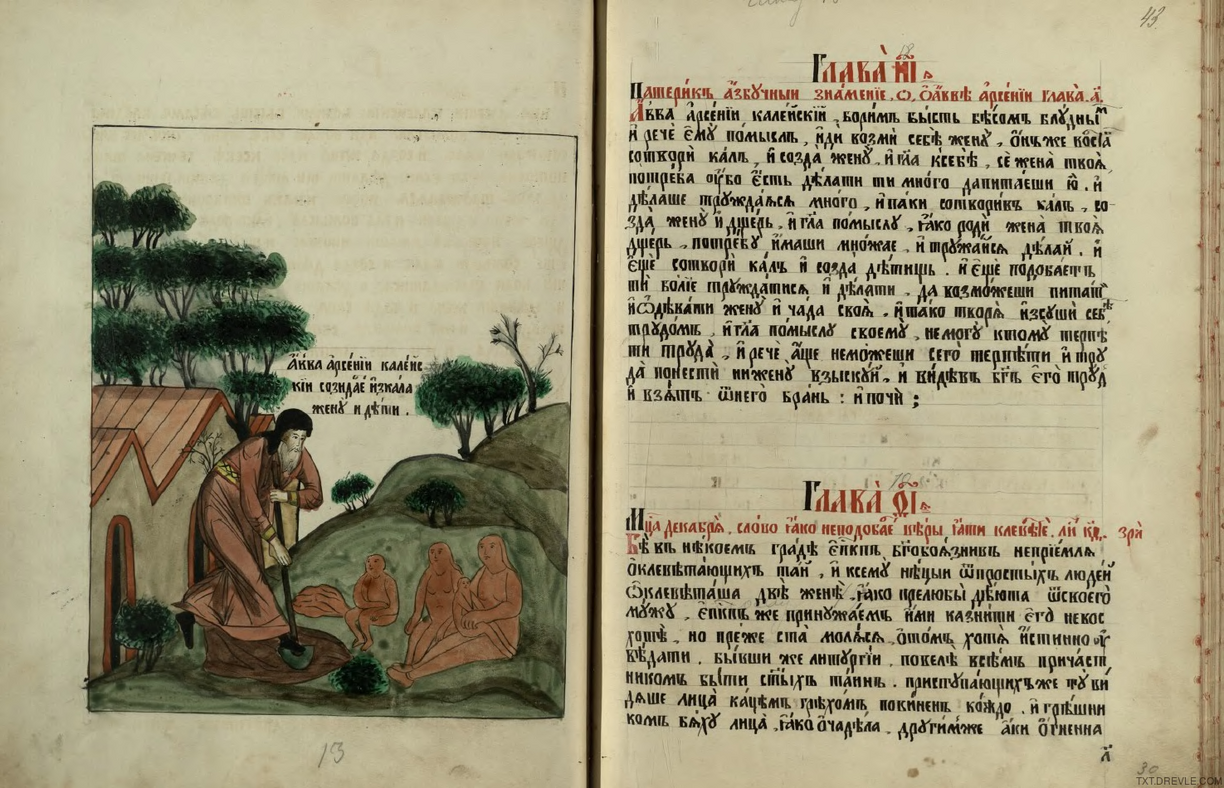 А҆вва арсе́нїи калеи̑с
кїи созида́е и҆зкала
жену̀ и дѣти .
13
43
Глава̀ и҃і
Патери́къ а҆збучныи зна́менїе , ѡ, о҆а҆ввѣ арсе́нїи глава̀ . а҃.
А҆вва а҆рсе́нїи кале́йскїй , бори́мъ бы́сть бѣ́сомъ блу́дны
и҆ речѐ є҆мꙋ̀ по́мыслъ , и҆ди возмѝ себѣ̀ женꙋ̀ , ѻ҆́нъ же
сотворѝ ка́лъ , и҆ созда̀ женꙋ̀ , и҆ гл҃а ксебѣ̀ , сѐ жена̀ твоѧ̀
потре́ба ᲂу҆́бо є҆́сть дѣ́лати ти мно́го дапита́еши ю҆̀ . и҆
дѣ́лаше трꙋжда́ѧсѧ много , и҆ па́ки сотвори́въ ка́лъ , со
зда̀ женꙋ̀ и҆ дще́рь , и҆ гл҃а помыслꙋ , ꙗ҆́ко родѝ жена̀ твоѧ̀
дще́рь , потре́бꙋ и҆́маши мно́жае , и҆ трꙋжа́йсѧ дѣ́лай . и҆
є҆щѐ сотворѝ ка́лъ и҆ созда̀ дѣ́тищь . и҆ є҆щѐ подоба́етъ
тѝ бо́лїе трꙋжда́тисѧ и҆ дѣ́лати , да возмо́жеши пита́т
и҆ ѡ҆дѣва́ти женꙋ̀ и҆ ча́да своѧ̀ . и҆ та́ко творѧ̀ и҆зсꙋшѝ себѐ
трꙋдо́мъ , и҆ гл҃а помыслꙋ своемꙋ̀ , немогꙋ̀ ктомꙋ̀ терпѣ́
ти трꙋда̀ , и҆ речѐ , а҆́ще немо́жеши сегѡ̀ терпѣ́ти и҆ трꙋ
да̀ понестѝ ни женꙋ̀ взыскꙋ́й , и҆ ви́дѣвъ бг҃ъ є҆гѡ̀ трꙋ́д
и҆ взѧ́тъ ѿнегѡ̀ бра́нь : и҆ почѝ ;
Глава̀ ѳ҃і
Мц҃а декабрѧ̀ , сло́во ꙗ҆́ко неподоба́е вѣ́ры ꙗ҆́ти клеве́тѣ , зрѝ
Бѣ̀ въ нѣ́коемъ гра́дѣ є҆пкпъ бг҃обоѧ́знивъ непрїе́млѧ
ѡ҆клевѣта́ющихъ та́й , и҆ ксемꙋ̀ нѣ́цыи ѿпросты́хъ люде́й
ѡ҆клевѣта́ша двѣ̀ женѣ̀ , ꙗ҆́ко прелюбы̀ дѣ́юща ѿсвоегѡ̀
мꙋ́жꙋ . є҆пкпъ же принꙋжа́емъ и҆́ми казни́ти є҆гѡ̀ невос
хотѣ̀ , но пре́же ста̀ молѧ́сѧ , ѻ҆то́мъ хотѧ̀ и҆́стинно ᲂу҆
вѣ́дати . бы́вши же литꙋргі́и , повелѣ̀ всѣ́мъ прича́ст
никомъ бы́ти ст҃ы́хъ та́инъ . пристꙋпа́ющихъ же тꙋ̀ ви́
дѧше лица̀ ка́цѣмъ грѣхо́мъ пови́ненъ ко́ждо . и҆ грѣ́шни
комъ бѧ́хꙋ лица̀ , ꙗ҆́ко ѻ҆чадѣ́ла , дрꙋги́мже а҆́ки ѻ҆́гненна
30
TXT.DREVLE.COM